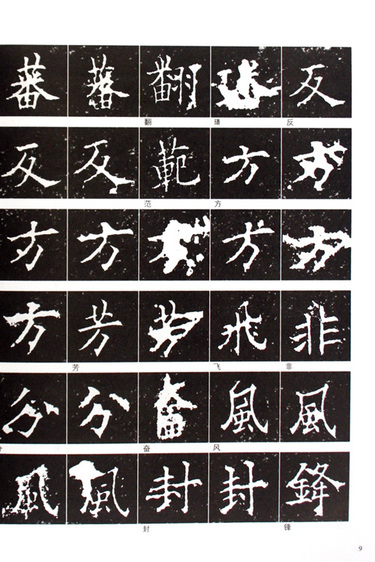 蕃 蕃 翻 反
翻 反
反 反 範 方 方
范 方
方 方 方 方
方 芳 芳 飛 非
芳 飞 非
分 分 奮 風 風
奋 风
風 風 封 封 鋒
封 锋
9